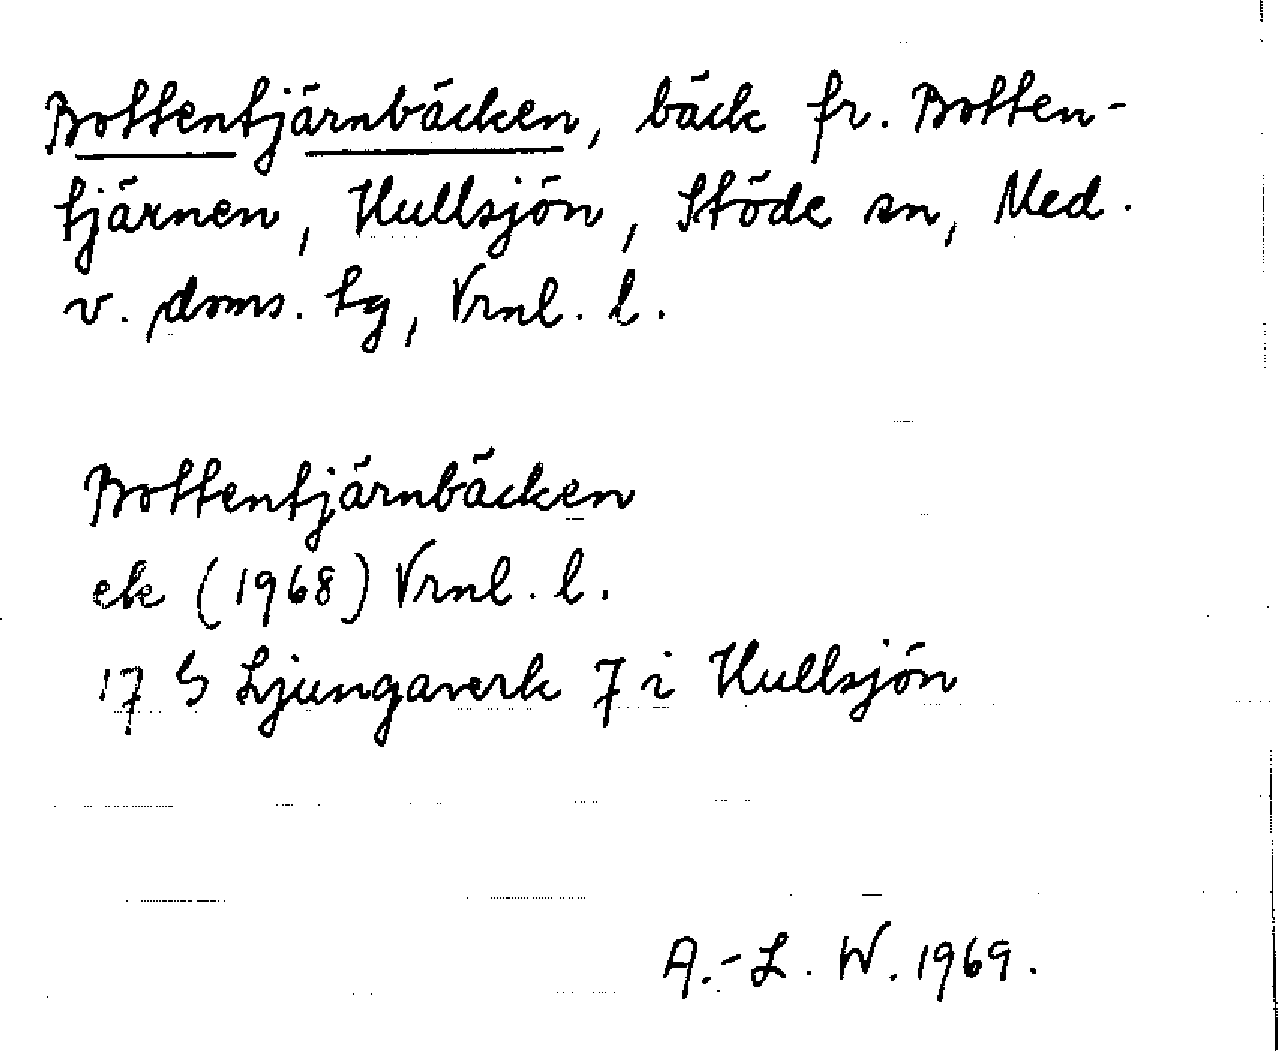 Bottentjärnbäcken, bäck fr. Botten-
tjärnen, Hullsjön, Stöde sn, Med.
v. doms. lg, Vrnl. l.
Bottentjärnbäcken
ek (1968) Vrnl. l.
17 G Ljungaverk 7 i Hullsjön
A.-L. W. 1969.